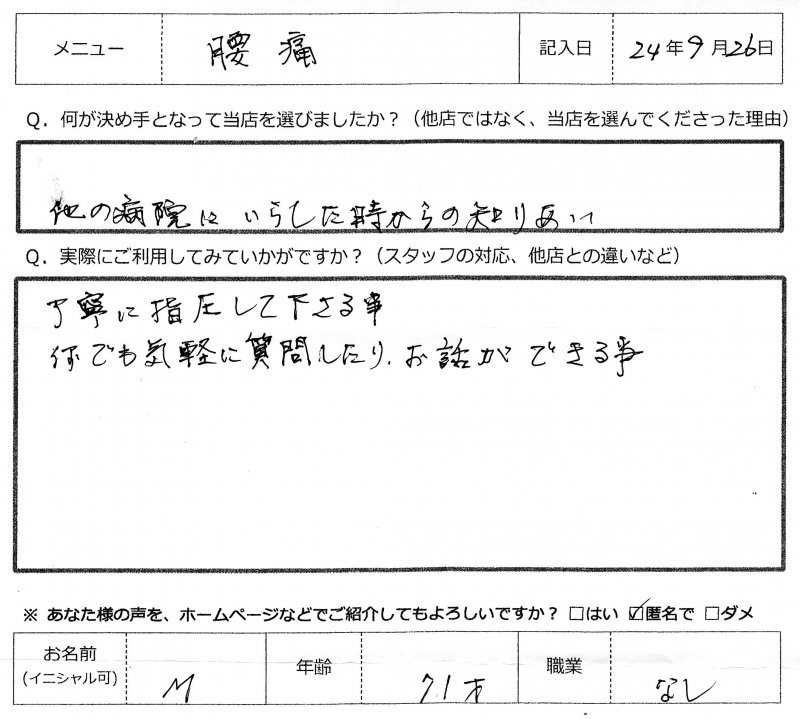 メニュー 腰痛 記入日 24年9月26日
Q．何が決め手となって当店を選びましたか？（他店ではなく、当店を選んでくださった理由）
他の病院にいらした時からの知りあい
Q．実際にご利用してみていかがですか？（スタッフの対応、他店との違いなど）
丁寧に指圧して下さる事
何でも気軽に質問したり、お話ができる事
※ あなた様の声を、ホームページなどでご紹介してもよろしいですか？ □はい ☑匿名で □ダメ
お名前 (イニシャル可) M 年齢 71才 職業 なし